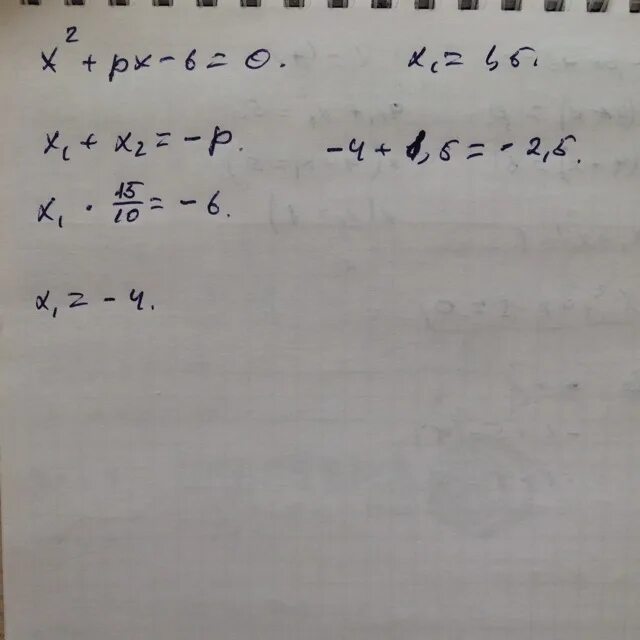 x² + px - 6 = 0. x₁ = 1,5.
x₁ + x₂ = -p. -4 + 1,5 = -2,5.
x₁ · 15/10 = -6.
x₁ = -4.